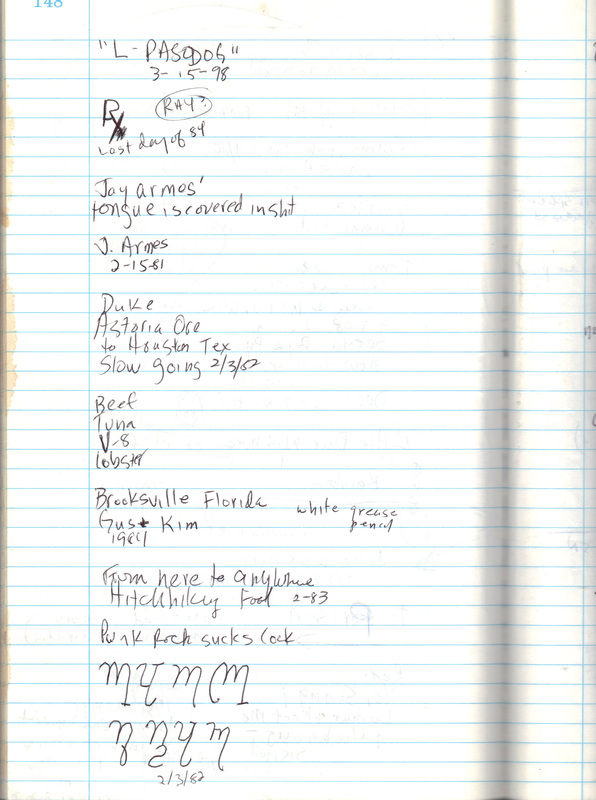 148
"L-PASODOG"
3-15-98
Rx RAY?
Last day of 84
Jay armes'
tongue is covered in shit
J. Armes
2-15-81
Duke
Astoria Ore
to Houston Tex
Slow going 2/3/82
Beef
Tuna
V-8
Lobster
Brooksville Florida
Gus + Kim white grease
1984 pencil
From here to anywhere
Hitchhiking Fool 2-83
Punk Rock sucks Cock
2/3/82